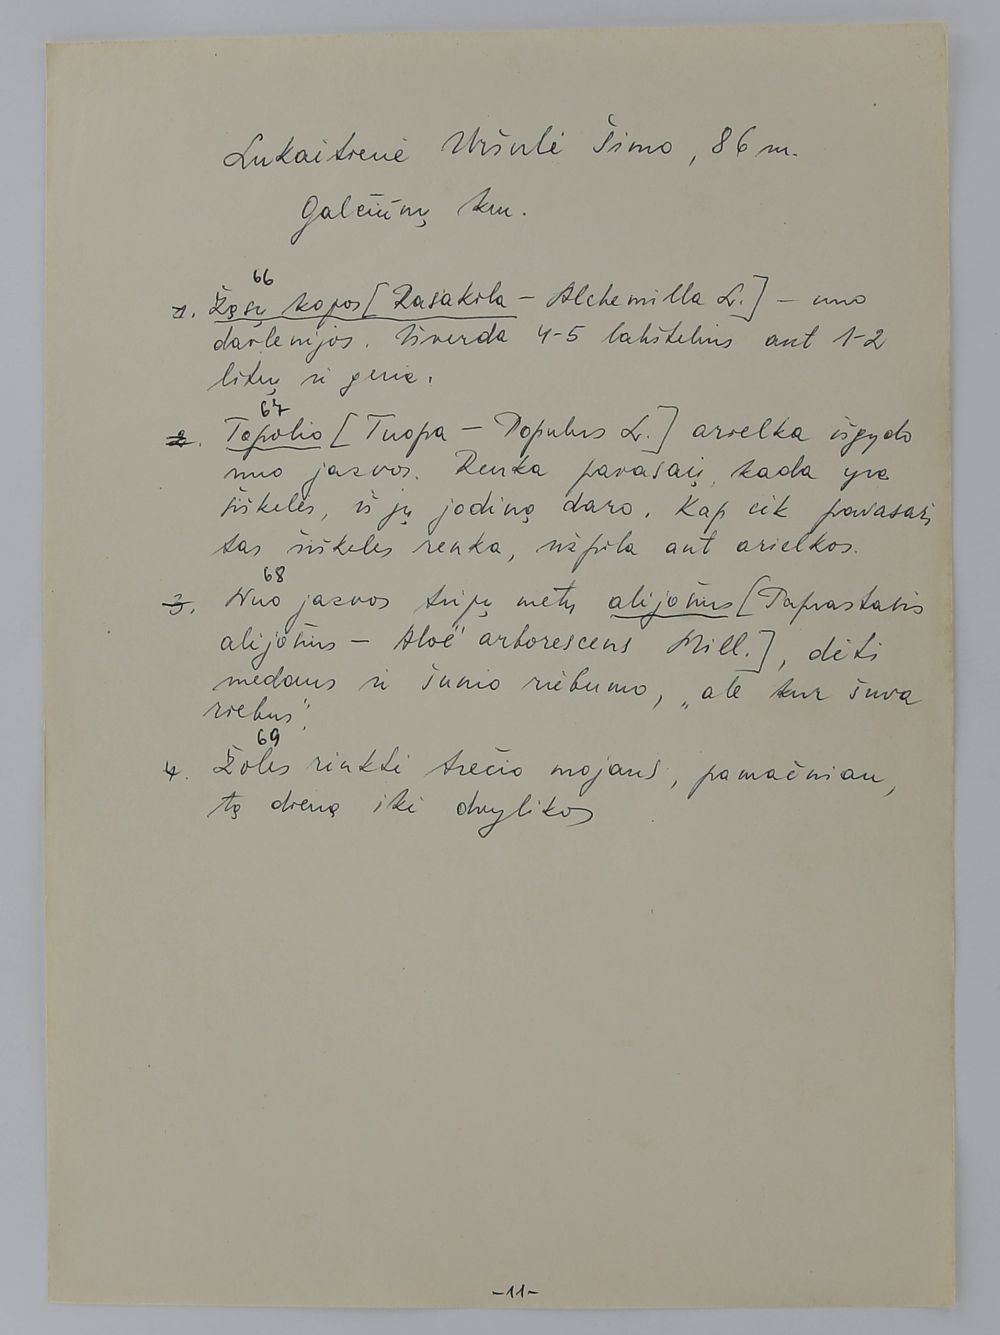 Lukaitienė Uršulė Šimo, 86 m.
Galčiūnų km.
66
1. Žąsų kapos [Rasakila – Alchemilla L.] – nuo
davlenijos. Išverda 4-5 lakštelius ant 1-2
litrų ir geria.
67
2. Tapolio [Tuopa – Populus L.] arielka išgydo
nuo jazvos. Renka pavasarį, kada yra
šiškelės, iš jų jodiną daro. Kap tik pavasarį
tas šiškeles renka, užpila ant arielkos.
68
3. Nuo jazvos trijų metų alijošius [Paprastasis
alijošius – Aloë arborescens Mill.], dėti
medaus ir šunio riebumo, „ale kur šuva
riebus".
69
4. Žoles rinkti trečio mojaus, pamačniau,
tą dieną iki dvylikos
-11-